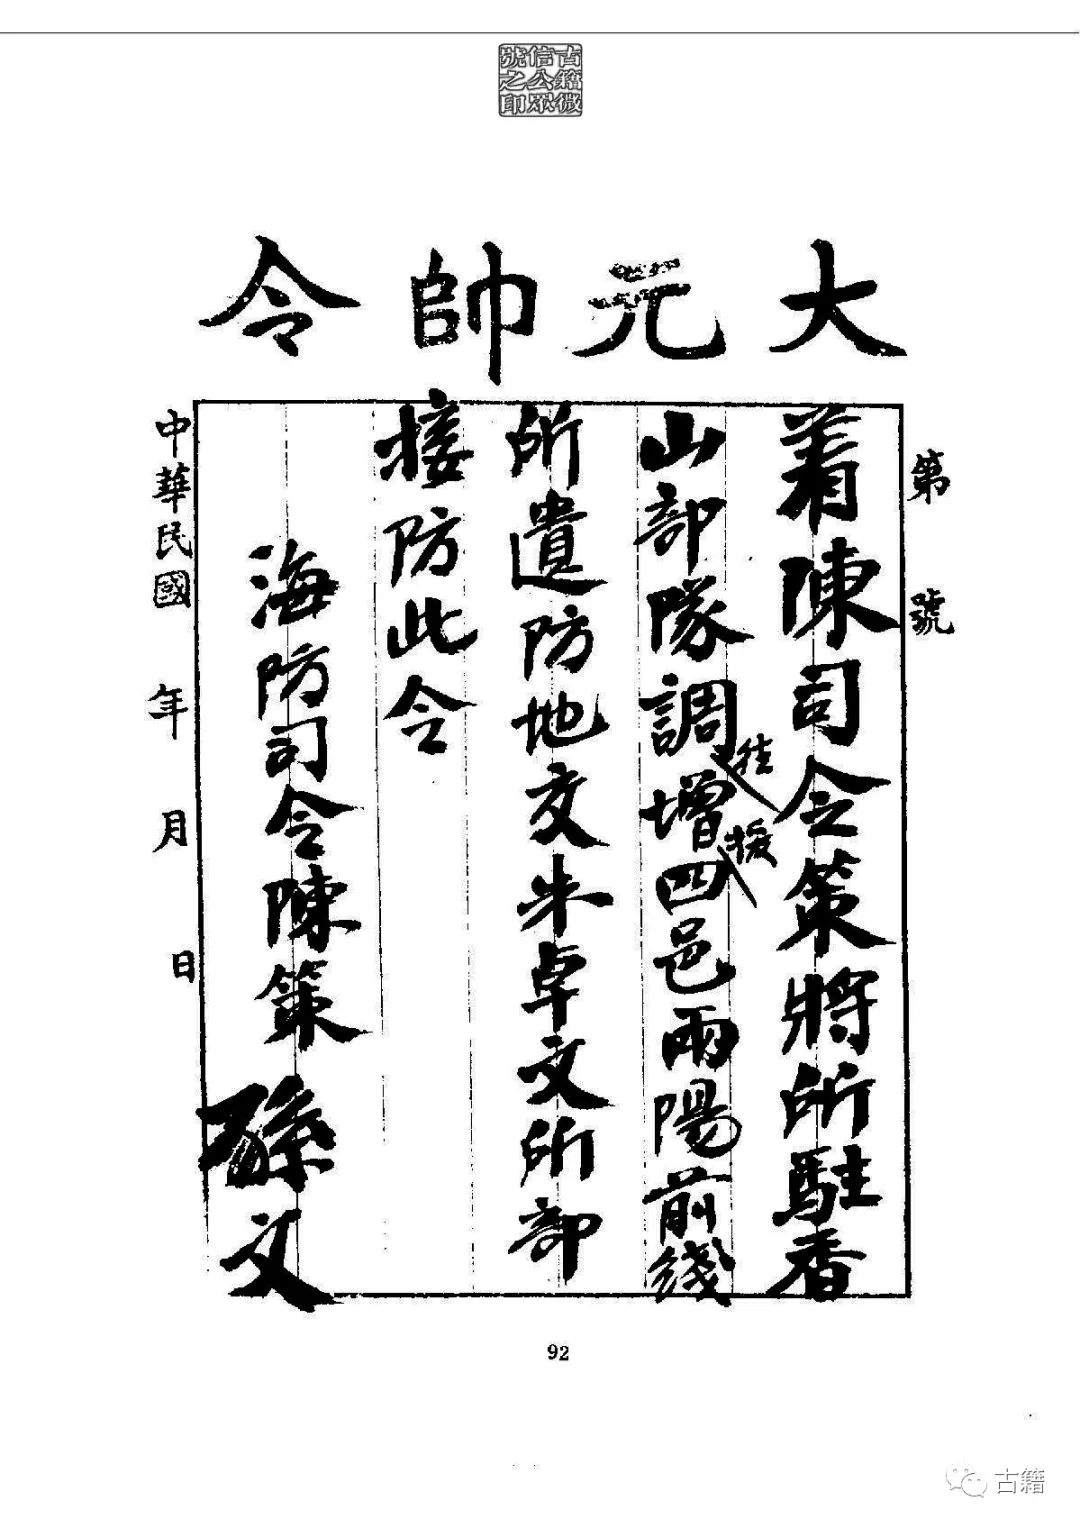 古籍微
信公眾
號之印
大元帥令
第　號
着陳司令策將所駐香
山部隊調往增援四邑兩陽前线
所遺防地交朱卓文所部
接防此令
海防司令陳策
孫文
中華民國　年　月　日
92
古籍